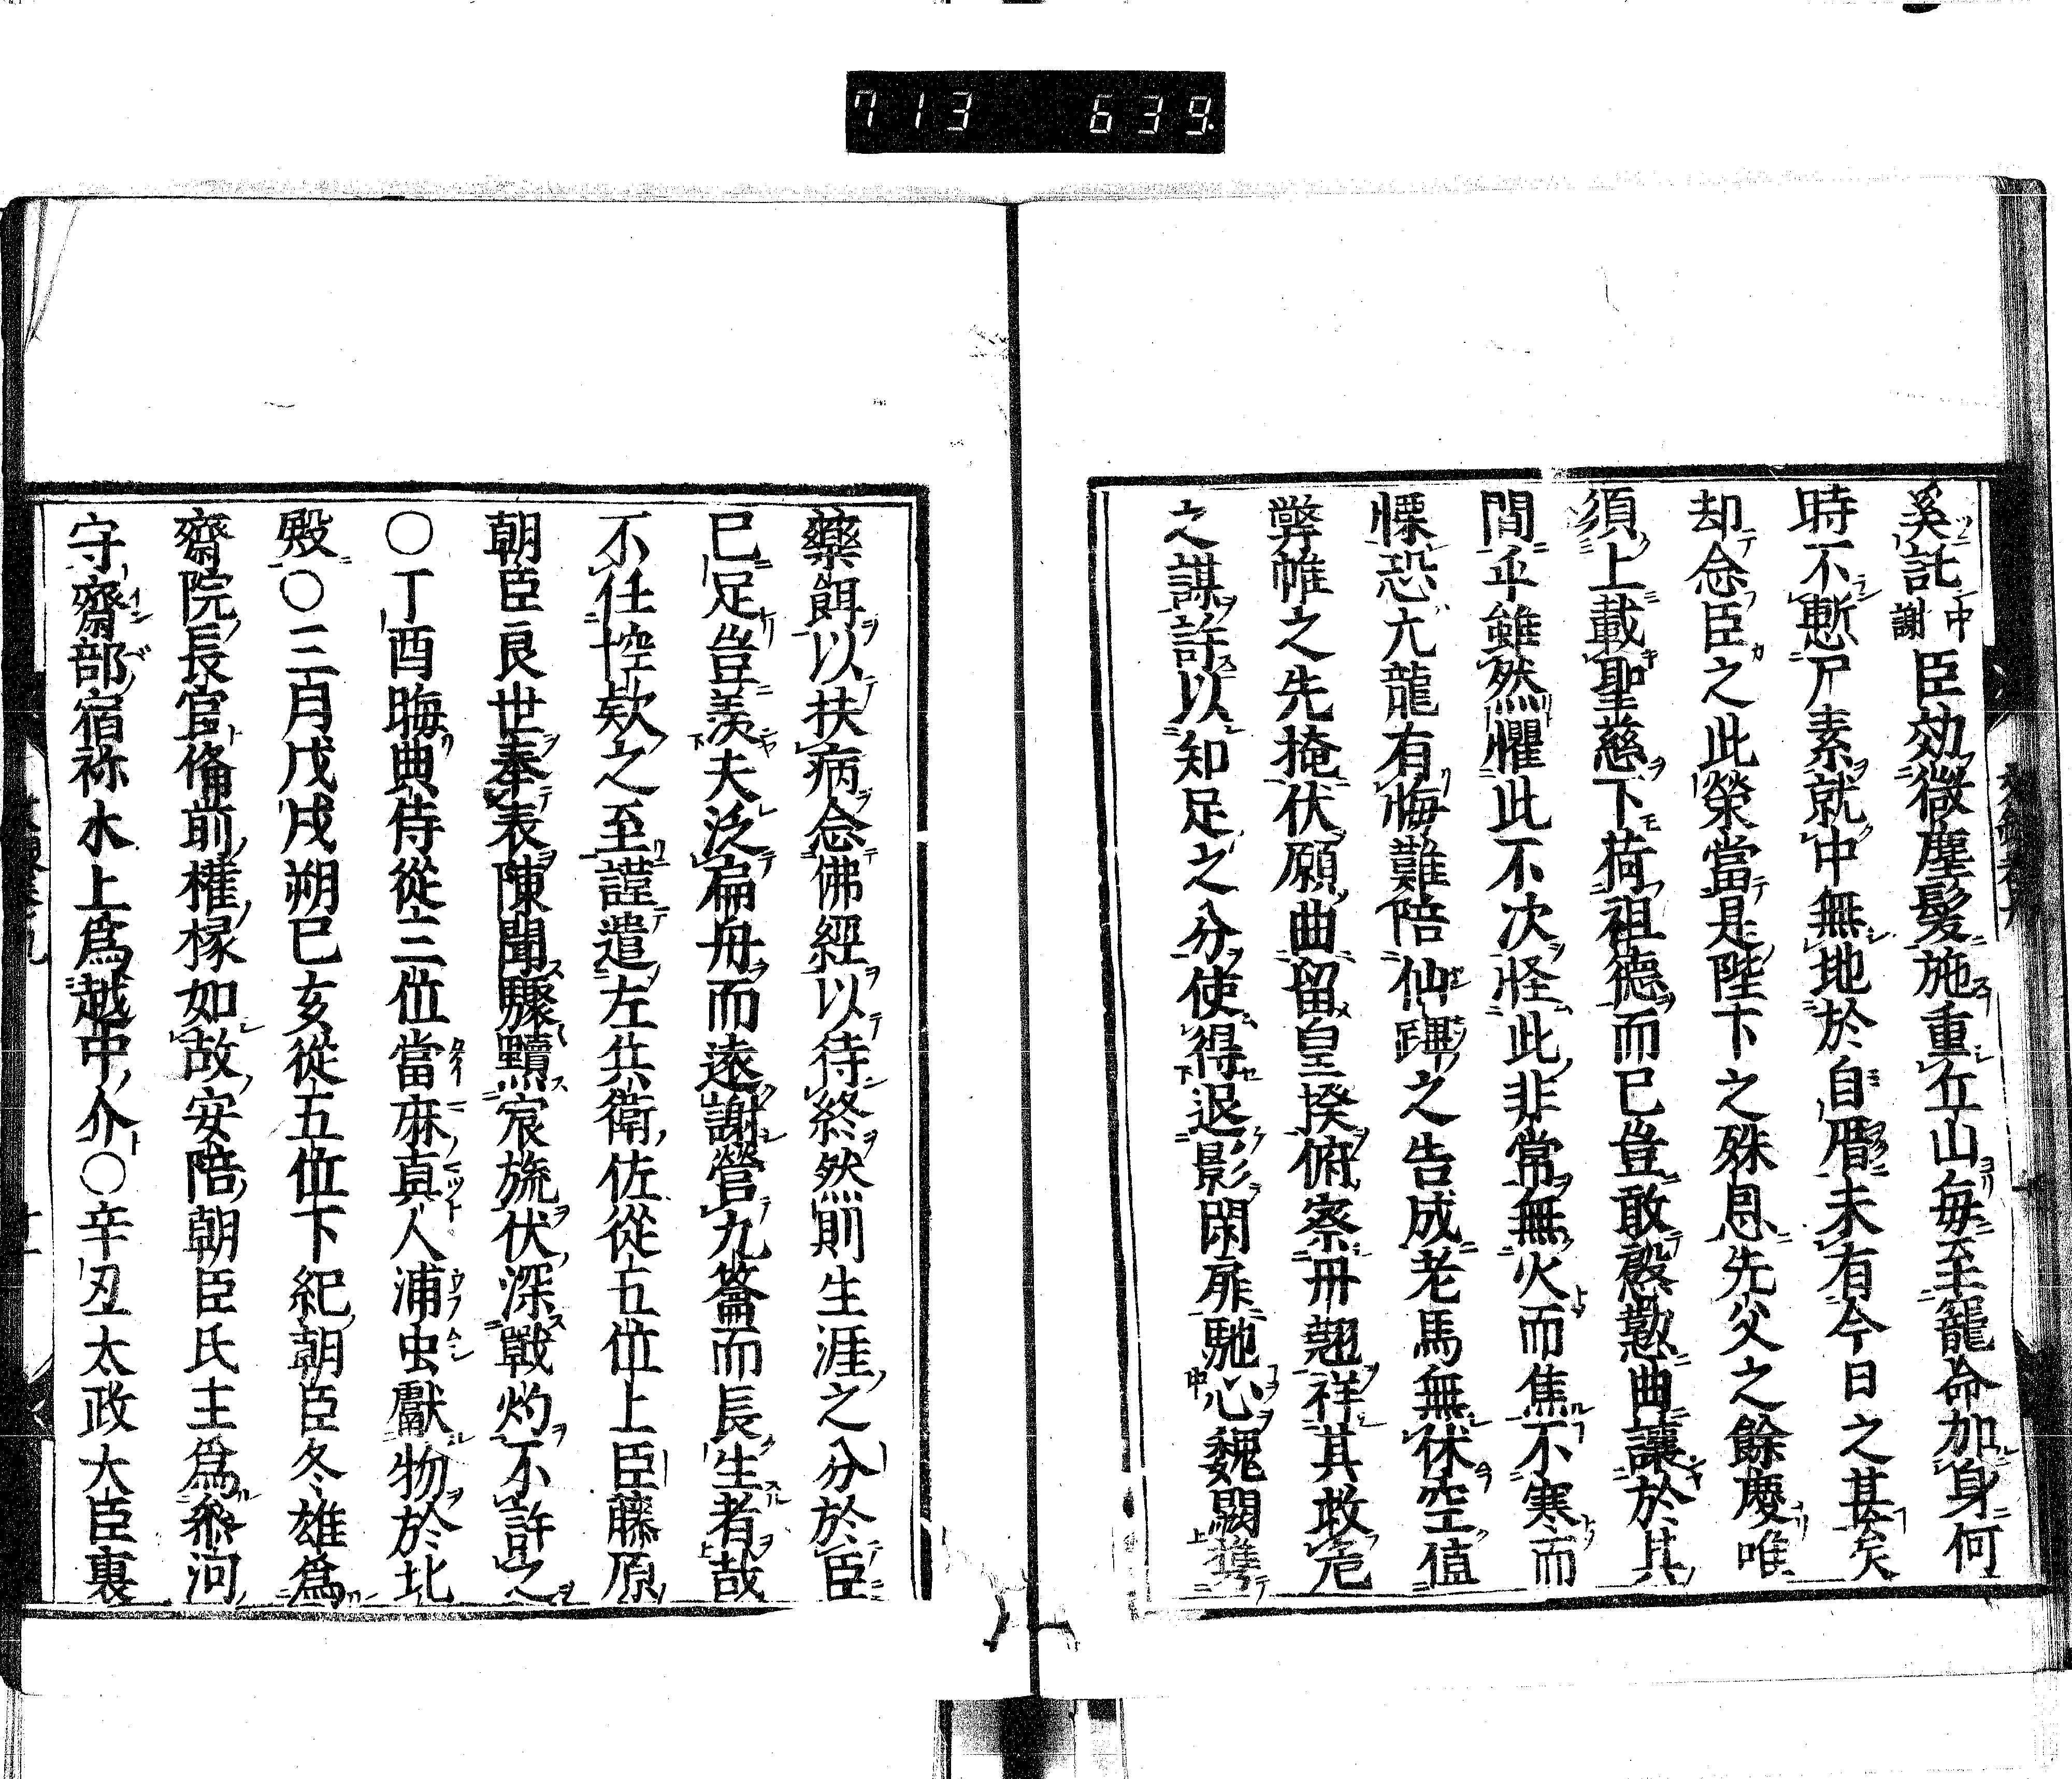 713 639
奚託中謝臣効微塵髪施重丘山毎至寵命加身何
時不慙尸素就中無地於自厝未有今日之甚矣
却念臣之此榮當是陛下之殊恩先父之餘慶唯
須上載聖慈下荷祖德而已豈敢慇懃曲讓於其
間乎雖然懼此不次怪此非常無火而焦不寒而
慄恐亢龍有悔難陪仙蹕之告成老馬無伏空値
弊帷之先掩伏願曲留皇揆俯察冊翹祥其救危
之謀許以知足之分使得退影閑扉馳心魏闕携
藥餌以扶病念佛經以待終然則生涯之分於臣
已足豈羨夫泛扁舟而遠謝營九籥而長生者哉
不任控欵之至謹遣左兵衛佐從五位上臣藤原
朝臣良世奉表陳聞驟黷宸旒伏深戰灼不許之
〇丁酉晦典侍從三位當麻真人浦虫獻物於北
殿〇三月戊戌朔己亥從五位下紀朝臣冬雄爲
齋院長官備前權掾如故安陪朝臣氏主爲參河
守齋部宿祢木上爲越中介〇辛丑太政大臣裏